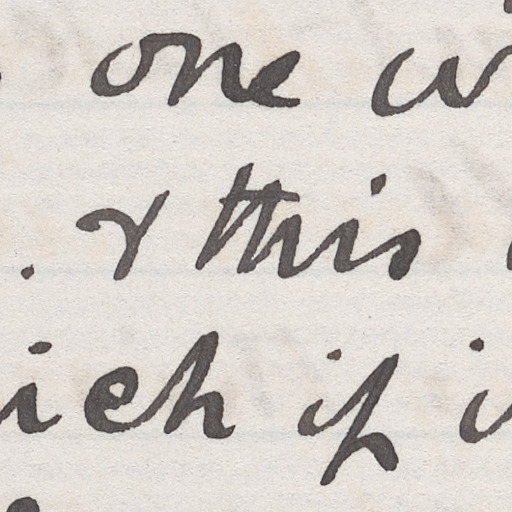 one
. & this
ich if